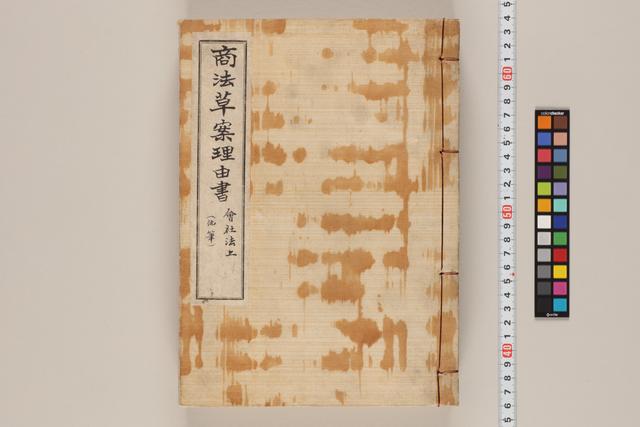 商法草案理由書
會社法上